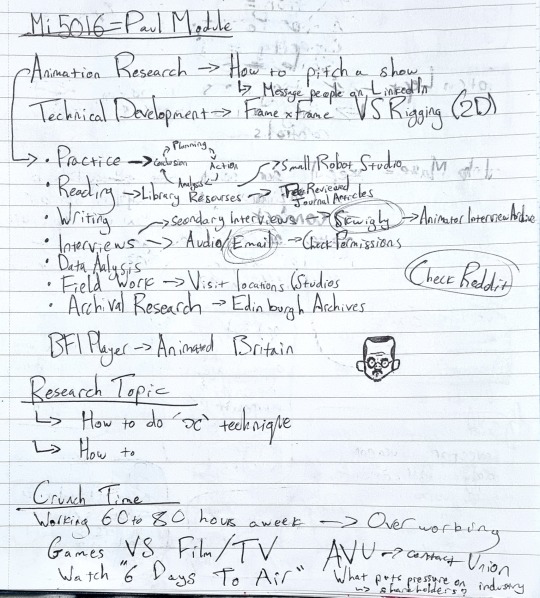 Mi5016 = Paul Module
Animation Research → How to pitch a show
↳ Message people on LinkedIn
Technical Development → Frame x Frame VS Rigging (2D)
Planning
• Practice → Conclusion Action → Small Robot Studio
Analysis
• Reading → Library Resourses → Reviewed Journal Articles
• Writing → Secondary Interviews → Skwigly → Animator Interview
• Interviews → Audio/Email → Check Permissions
• Data Aalysis
Check Reddit
• Field Work → Visit locations/Studios
• Archival Research → Edinburgh Archives
BFI Player → Animated Britain
Research Topic
↳ How to do "x" technique
↳ How to
Crunch Time
Working 60 to 80 hours a week → Overworking
Games VS Film/TV AVU → contact Union
Watch "6 Days To Air" What puts pressure on industry
↳ shareholders?